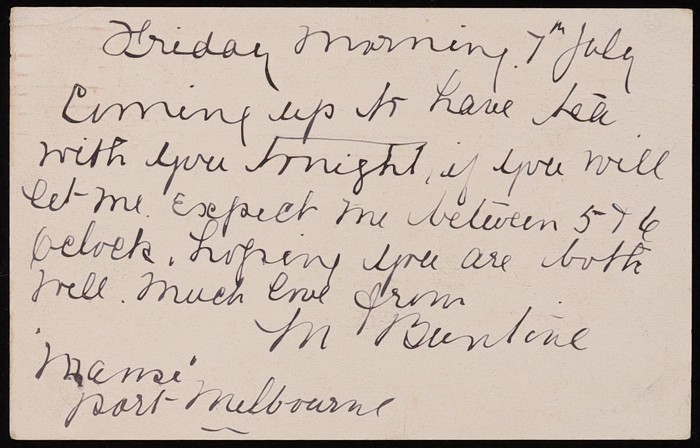 Friday Morning. 7th July
Coming up to have tea
with you tonight, if you will
let me. Expect me between 5 & 6
Oclock. hoping you are both
well. Much love from
M Buntine
"Manse"
Port Melbourne